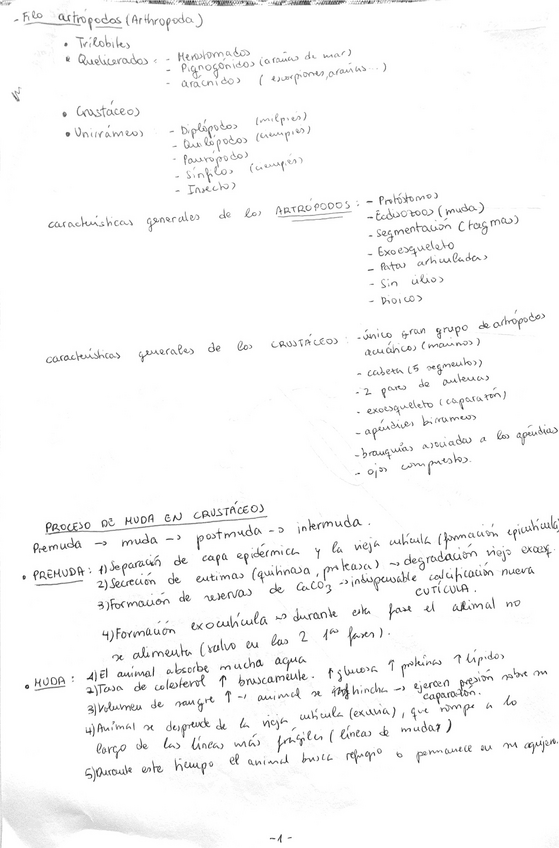 - Filo artrópodos (Arthropoda)
• Trilobites
• Quelicerados: - Merostomados
- Pignogónidos (arañas de mar)
- arácnidos (escorpiones, arañas...)
• Crustáceos
• Unirrámeos: - Diplópodos (milpiés)
- Quilópodos (ciempiés)
- Paurópodos
- Sínfilos (ciempiés)
- Insectos
características generales de los ARTRÓPODOS: - Protóstomos
- Ecdisozoos (muda)
- Segmentación (tagmas)
- Exoesqueleto
- Patas articuladas
- Sin cilios
- Dioicos
características generales de los CRUSTÁCEOS: - único gran grupo de artrópodos
acuáticos (marinos)
- cabeza (5 segmentos)
- 2 pares de antenas
- exoesqueleto (caparazón)
- apéndices birrameos
- branquias asociadas a los apéndices
- ojos compuestos.
PROCESO DE MUDA EN CRUSTÁCEOS
Premuda → muda → postmuda → intermuda.
• PREMUDA: 1) Separación de capa epidérmica y la vieja cutícula (formación epicutícula)
2) Secreción de enzimas (quitinasa, proteasa) → degradación viejo exoesq.
3) Formación de reservas de CaCO3 → indispensable calcificación nueva
CUTÍCULA.
4) Formación exocutícula → durante esta fase el animal no
se alimenta (salvo en las 2 1as fases).
• MUDA: 1) El animal absorbe mucha agua
2) Tasa de colesterol ↑ bruscamente. ↑ glucosa ↑ proteínas ↑ lípidos
3) Volumen de sangre ↑ → animal se hincha → ejercen presión sobre su
caparazón.
4) Animal se desprende de la vieja cutícula (exuvia), que rompe a lo
largo de las líneas más frágiles (líneas de mudas)
5) Durante este tiempo el animal busca refugio o permanece en su agujero.
- 1 -